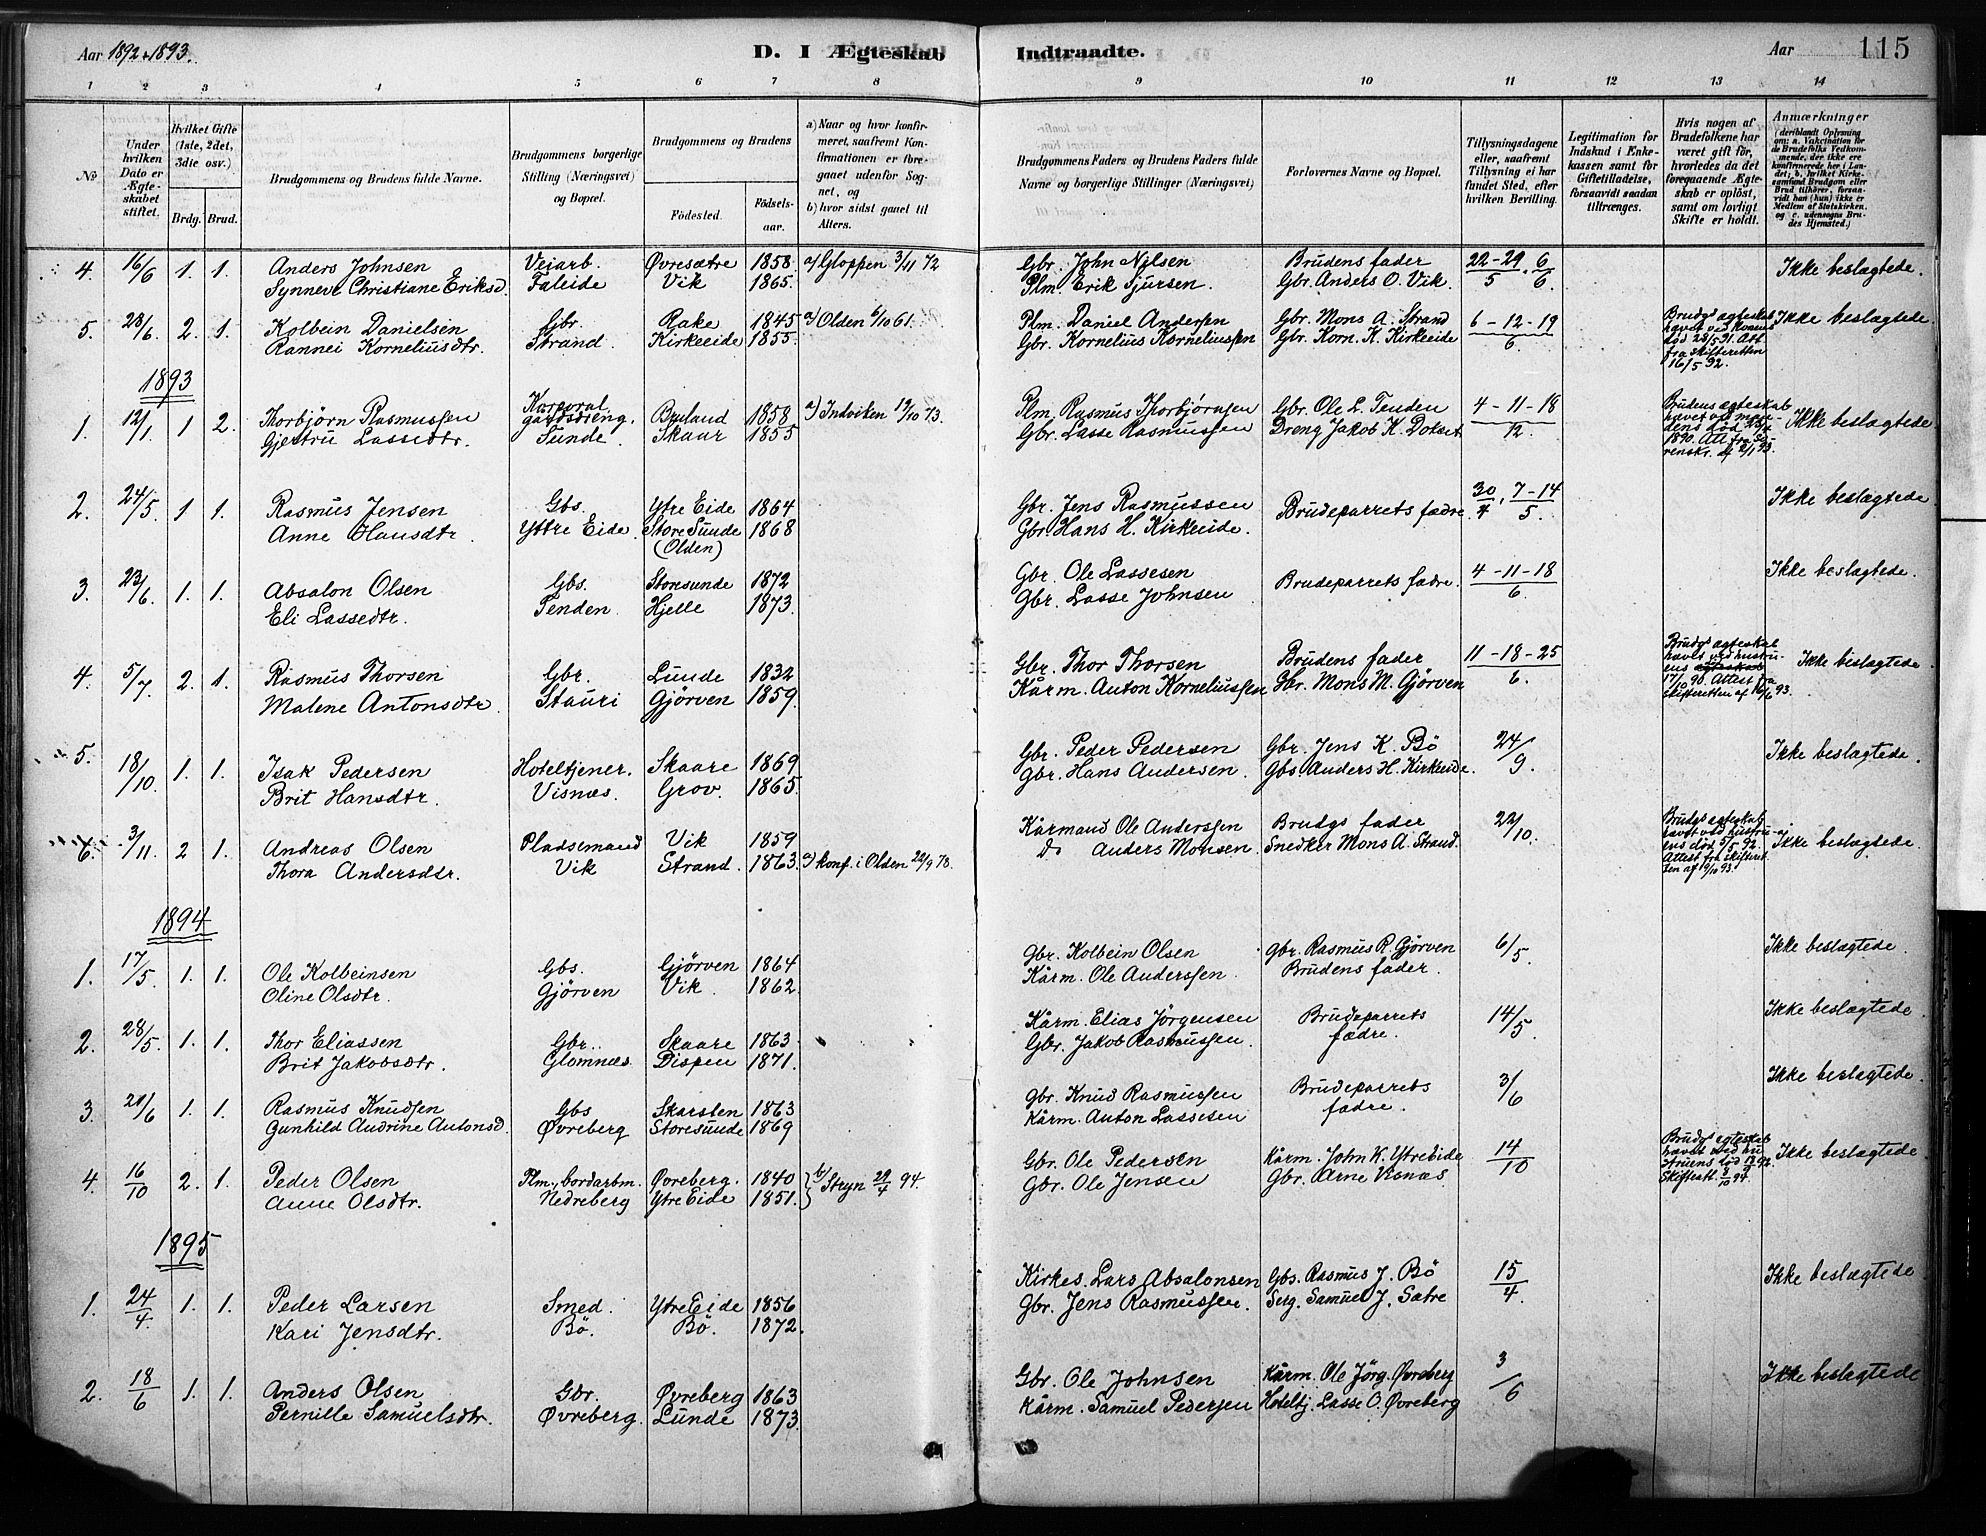 Aar 1892 & 1893. D. I Ægteskab Indtraadte. Aar 115
1 2 3 4 5 6 7 8 9 10 11 12 13 14
No
Under hvilken Dato er Ægteskabet stiftet.
Hvilket Gifte (1ste, 2det, 3die osv.)
Brdg. Brud.
Brudgommens og Brudens fulde Navne.
Brudgommens borgerlige Stilling (Næringsvei) og Bopæl.
Brudgommens og Brudens
Fødested. Fødselsaar.
a) Naar og hvor konfirmeret, saafremt Konfirmationen er foregaaet udenfor Sognet, og
b) hvor sidst gaaet til Alters.
Brudgommens Faders og Brudens Faders fulde Navne og borgerlige Stillinger (Næringsvei)
Forlovernes Navne og Bopæl.
Tillysningsdagene eller, saafremt Tillysning ei har fundet Sted, efter hvilken Bevilling.
Legitimation for Indskud i Enkekassen samt for Giftetilladelse, forsaavidt saadan tiltrænges.
Hvis nogen af Brudefolkene har været gift før, hvorledes da det foregaaende Ægteskab er opløst, samt om lovligt Skifte er holdt.
Anmærkninger (deriblandt Oplysning om: a. Vakcination for de Brudefolks Vedkommende, der ikke ere konfirmerede her i Landet; b. hvilket Kirkesamfund Brudgom eller Brud tilhører, forsaavidt han (hun) ikke er Medlem af Statskirken, og c. udensogns Brudes Hjemsted.)
4. 16/6 1. 1. Anders Johnsen Veiarb. Øvresætre 1858 a) Gloppen 3/11 72 Gbr. John Nilsen Brudens fader 22-29/5 . 6/6 Ikke beslægtede.
Synneve Christiane Eriksd. Faleide Vik 1865. Plm. Erik Sjursen. Gbr. Anders O. Vik.
5. 28/6 2. 1. Kolbein Danielsen Gbr. Rake 1845 a) Olden 6/10 61. Plm. Daniel Anderssen Gbr. Mons A. Strand 6-12-19/6. Brudgs ægteskab hævet ved konens død 28/5 91. Att. fra skifteretten 16/5 92. Ikke beslægtede
Rannei Korneliusdtr. Strand. Kirkeeide 1855. Gbr. Kornelius Korneliussen Gbr. Korn. K. Kirkeeide
1893
1. 12/1 1 2. Thorbjörn Rasmussen Korporal gaardsdreng. Bruland 1858 a) Indviken 19/10 73. Plm. Rasmus Thorbjörnsen Gbr. Ole L. Tenden 4-11-18/12. Brudens ægteskab hævet ved mandens død 1890. Att. fra Sorenskr. af 2/1 93. Ikke beslægtede
Gjertru Lassedtr. Tunde. Skaar 1855 Gbr. Lasse Rasmussen Dreng Jakob K. Dokset
2. 24/5. 1 1. Rasmus Jensen Gbs. Ytre Eide 1864 Gbr. Jens Rasmussen Brudeparrets fædre. 30/4 . 7-14/5. Ikke beslægtede
Anne Hansdtr. Yttre Eide. Store Sunde (Olden) 1868 Gbr. Hans H. Kirkeeide.
3. 23/6. 1. 1. Absalon Olsen Gbs. Storesunde 1872 Gbr. Ole Lassesen Brudeparrets fædre. 4-11-18/6. Ikke beslægtede.
Eli Lassedtr. Tenden. Hjelle 1873. Gbr. Lasse Johnsen
4. 5/7 2. 1. Rasmus Thorsen Gbr. Lunde 1832 Gbr. Thor Thorsen Brudens fader 11-18-25/6. Brudgs ægteskab hævet ved hustruens ægteskab 17/10 90. Attest fra skifteretten af 16/6 93. Ikke beslægtede
Malene Antonsdtr. Stauri Gjörven 1859. Kårm. Anton Korneliussen Gbr. Mons M. Gjörven
5. 18/10 1. 1. Isak Pedersen Hoteltjener. Skaare 1869 Gbr. Peder Pedersen Gbr. Jens K. Bö 24/9. Ikke beslægtede.
Brit Hansdtr. Visnes. Grov. 1865. Gbr. Hans Andersen. Gbs. Anders H. Kirkeeide.
6. 3/11 2 1. Andreas Olsen Pladsemand Vik 1859 Kårmand Ole Anderssen Brudgs fader 22/10. Brudgs ægteskab hævet ved hustruens død 9/5 92. Attest fra skifteretten af 9/10 93. Ikke beslægtede.
Thora Andersdtr. Vik Strand. 1863. a) konf. i Olden 22/9 78. Do Anders Monsen. Snedker Mons A. Strand.
1894
1. 17/5 1. 1. Ole Kolbeinsen Gbs. Gjörven 1864 Gbr. Kolbein Olsen Gbr. Rasmus R. Gjörven 6/5. Ikke beslægtede.
Oline Olsdtr. Gjörven Vik 1862. Kårm. Ole Anderssen. Brudens fader.
2. 28/5. 1. 1. Thor Eliassen Gbr. Skaare 1863 Kårm. Elias Jörgensen Brudeparrets fædre. 14/5 Ikke beslægtede.
Brit Jakobsdtr. Glomnæs Dispen 1871. Gbr. Jakob Rasmussen.
3. 21/6 1. 1. Rasmus Knudsen Gbs Skarsten 1863 Gbr. Knud Rasmussen Brudeparrets fædre. 3/6 Ikke beslægtede.
Gunhild Andrine Antonsd. Øvreberg Storesunde 1869 Kårm. Anton Lassesen
4. 16/10 2. 1. Peder Olsen Plm., bordarbm. Øvreberg. 1840 b) Stryn 29/4 94. Gbr. Ole Pedersen Kårm. John K. Ytreeide 14/10 Brudgs ægteskab hævet ved hustruens død. Skifteatt. 8/10 94. Ikke beslægtede.
Anne Olsdtr. Nedreberg Ytre Eide 1851. Gbr. Ole Jensen Gbr. Arne Visnæs.
1895
1. 24/4. 1. 1. Peder Larsen Smed. Ytre Eide 1856 Kirkes. Lars Absalonsen Gbs. Rasmus J. Bö 15/4. Ikke beslægtede.
Kari Jensdtr. Bö. Bö. 1872. Gbr. Jens Rasmussen. Serg. Samuel J. Sætre
2. 18/6 1. 1. Anders Olsen Gbr. Øvreberg 1863 Gbr. Ole Johnsen Kårm. Ole Jörg. Øvreberg 3/6 Ikke beslægtede
Pernille Samuelsdtr. Øvreberg. Lunde 1873. Kårm. Samuel Pedersen Hoteltj. Lasse O. Øvreberg